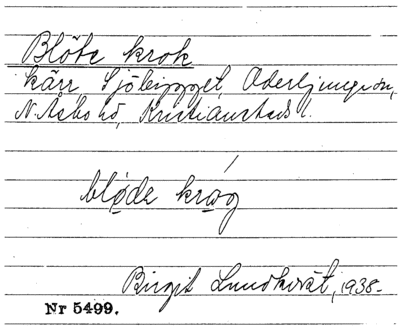 Blöte krok
kärr, Sjöbygget, Oderljunga sn,
N. Åsbo hd, Kristianstads l.
bløde krag
Birgit Lundkvist, 1938.
Nr 5499.